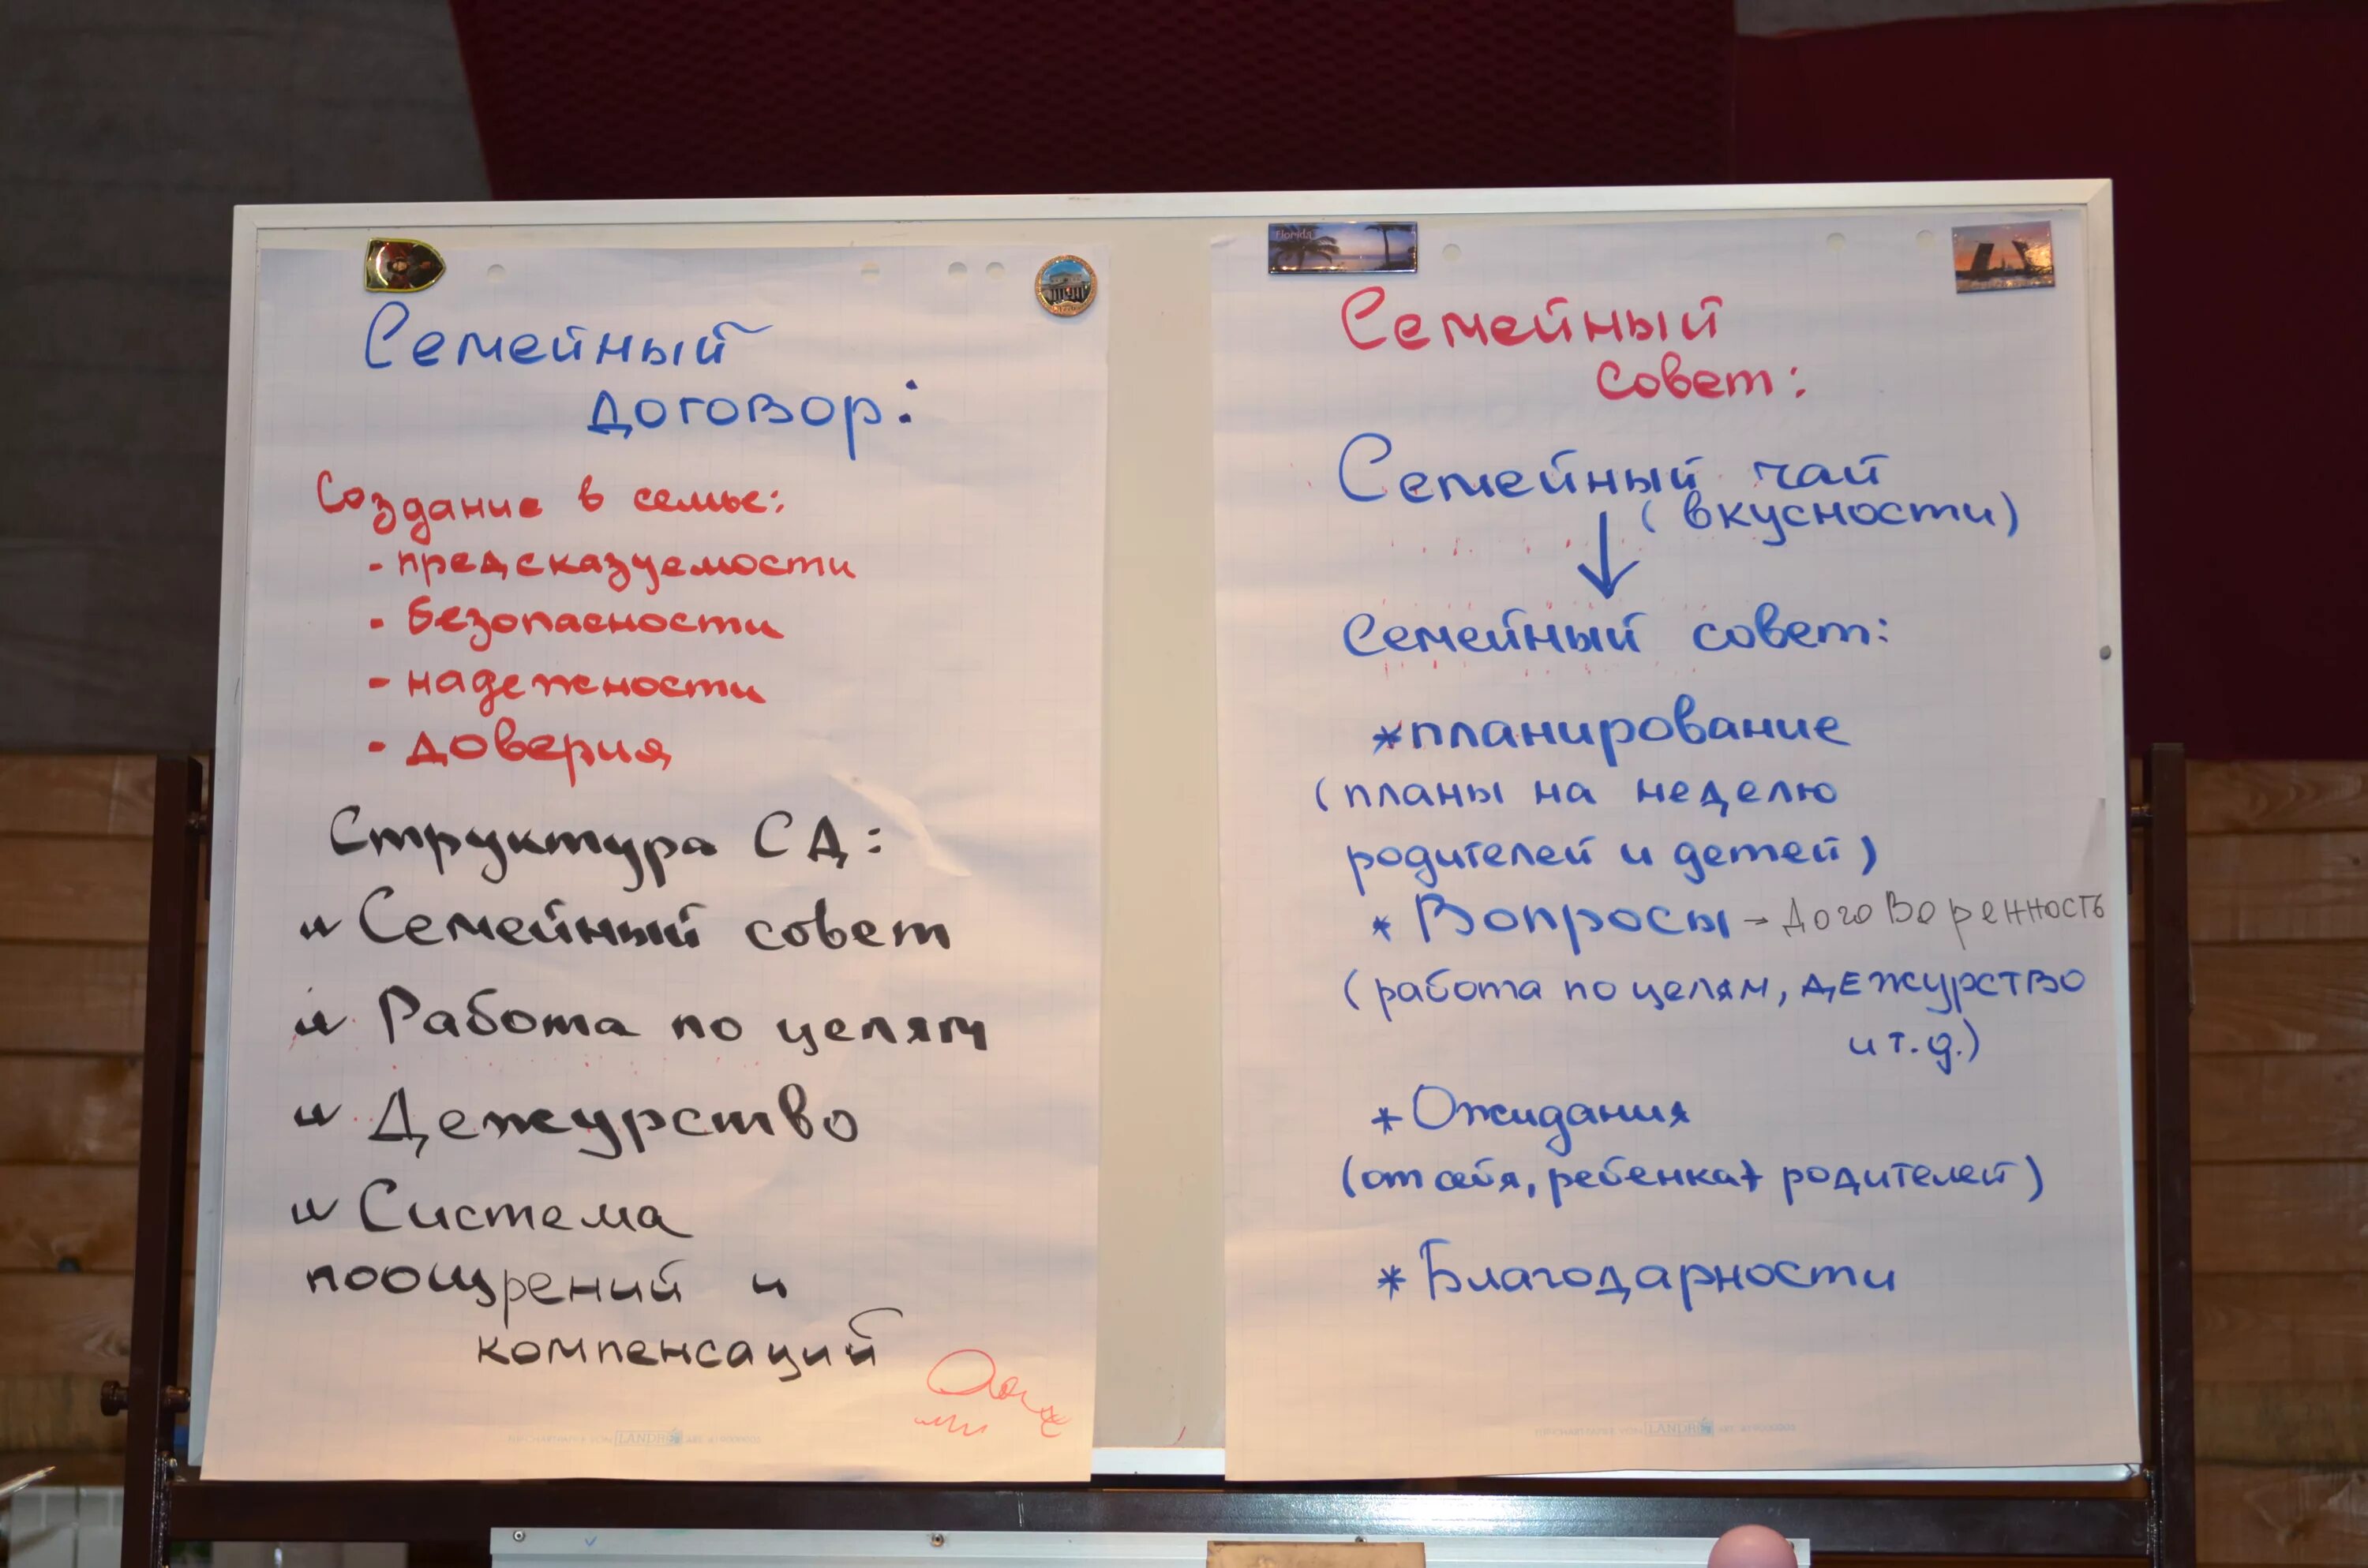 Семейный
договор:
Создание в семье:
- предсказуемости
- безопасности
- надежности
- доверия
Структура СД:
Семейный совет
Работа по целям
Дежурство
Система
поощрений и
компенсаций
Florida
Семейный
совет:
Семейный чай
(вкусности)
↓
Семейный совет:
*планирование
(планы на неделю
родителей и детей)
* Вопросы → договоренность
(работа по целям, дежурство
и т.д.)
* Ожидания
(от себя, ребенка + родителей)
* Благодарности